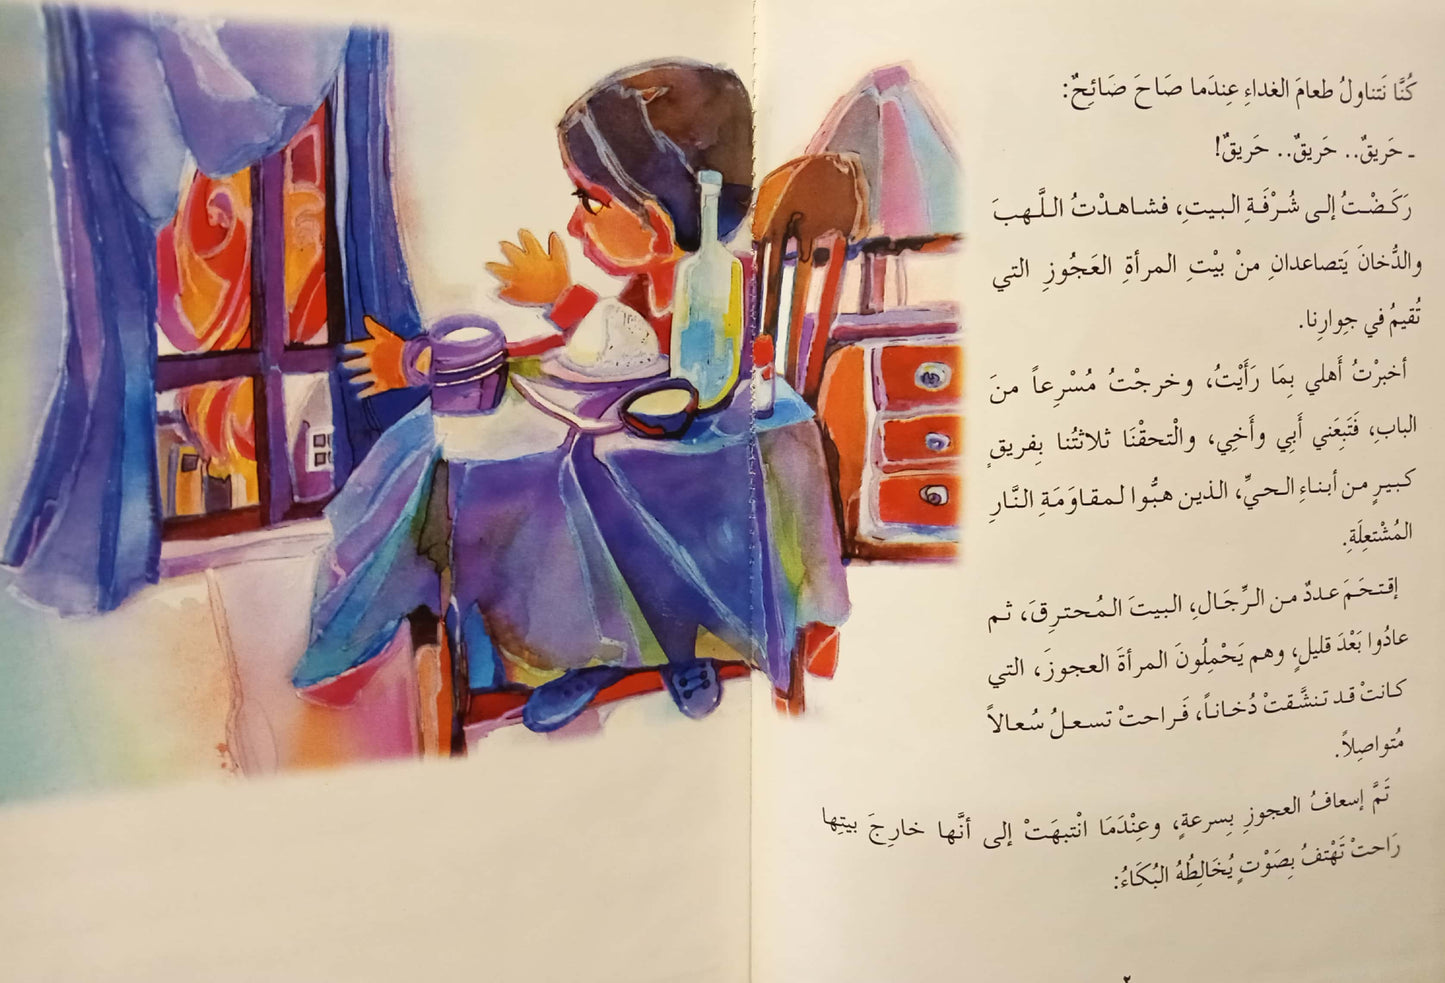 كُنَّا نَتناولُ طعامَ الغداءِ عِندَما صَاحَ صَائِحٌ:
- حَريقٌ.. حَريقٌ.. حَريقٌ!
رَكَضْتُ إلى شُرْفَةِ البيتِ، فشاهدْتُ اللَّهبَ
والدُّخانَ يَتصاعدانِ منْ بيْتِ المرأةِ العَجُوزِ التي
تُقيمُ في جِوارِنا.
أخبرْتُ أَهلي بِمَا رَأَيْتُ، وخرجْتُ مُسْرِعاً منَ
البابِ، فَتَبِعَني أَبِي وأَخِي، والْتحقْنَا ثلاثتُنا بِفريقٍ
كبيرٍ من أبناءِ الحيِّ، الذين هبُّوا لمقاوَمَةِ النَّارِ
المُشْتعِلَةِ.
إقتحَمَ عددٌ من الرِّجَالِ، البيتَ المُحترِقَ، ثم
عادُوا بَعْدَ قليلٍ، وهم يَحْمِلُونَ المرأةَ العجوزَ، التي
كانتْ قد تنشَّقتْ دُخاناً، فَراحتْ تسعلُ سُعالاً
مُتواصِلاً.
تَمَّ إسعافُ العجوزِ بِسرعةٍ، وعِنْدَمَا انْتبهَتْ إلى أنَّها خارِجَ بيتِها
رَاحتْ تَهْتفُ بِصَوْتٍ يُخَالِطُهُ البُكَاءُ:
٢